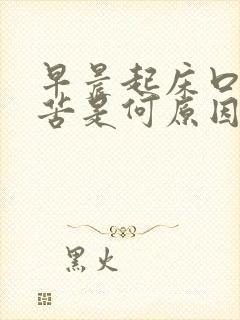 早晨起床口
苦是何原因
黑火